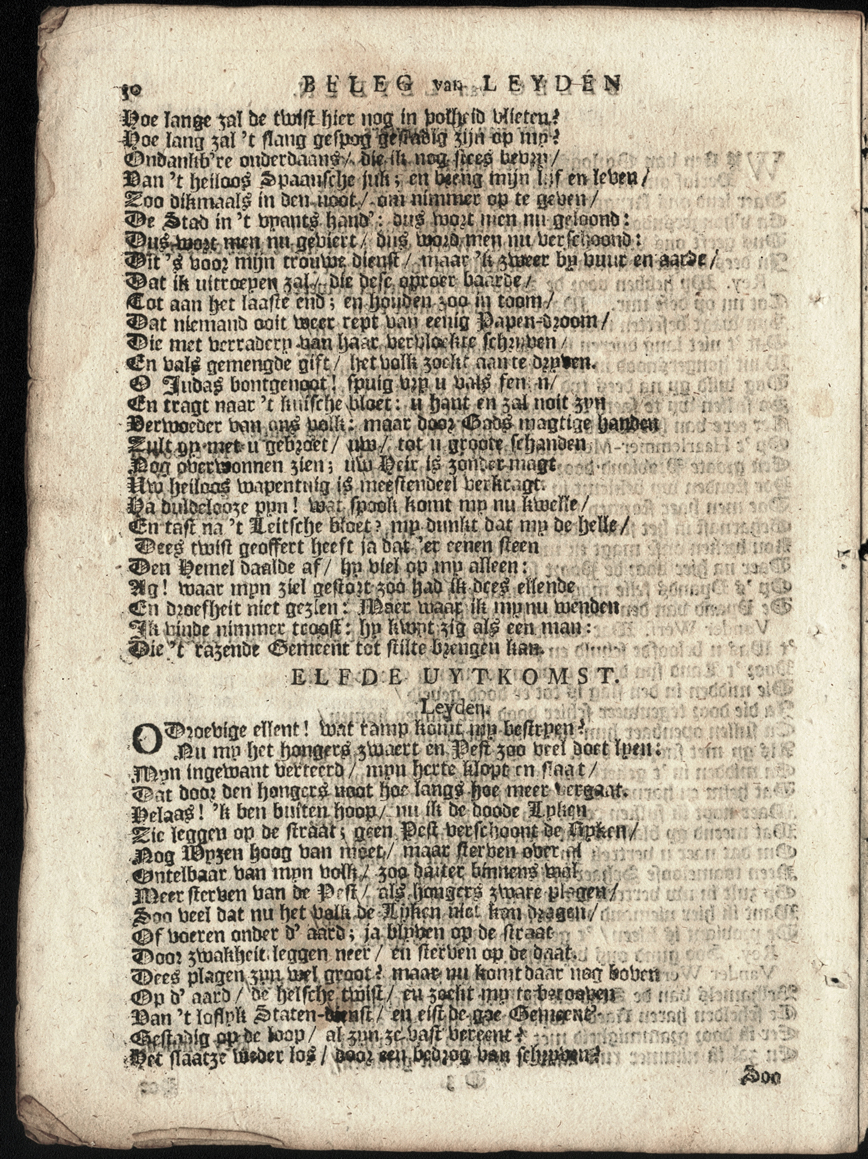 30 BELEG van LEYDEN
Hoe lange zal de twist hier nog in volheid vlieten?
Hoe lang zal 't slang gespog gestadig zijn op my?
Ondankb're onderdaans/ die ik nog steets bevry/
Van 't heiloos Spaansche juk; en breng mijn lijf en leven/
Zoo dikmaals in den noot/ om nimmer op te geven/
De Stad in 't vyants hand: dus wort men nu geloond:
Dus wort men nu geviert/ dus word men nu verschoond:
Dit 's voor mijn trouwe dienst/ maar 'k zweer by vuur en aarde/
Dat ik uitroepen zal/ die dese oproer baarde/
Tot aan het laaste end; en houden zoo in toom/
Dat niemand ooit weer rept van eenig Papen-droom/
Die met verradery van haar vervloekte schryven/
En vals gemengde gift/ het volk zoekt aan te dryven.
O Judas bontgenoot! spuig vry u vals fenyn/
En tragt naar 't kuische bloet: u hant en zal noit zyn
Verwoeder van ons volk: maar door Gods magtige handen
Zult gy met u gebroet/ uw/ tot u groote schanden
Nog overwonnen zien; uw Heir is zonder magt
Uw heiloos wapentuig is meestendeel verkragt.
Ha duldelooze pyn! wat spook komt my nu kwelle/
En tast na 't Leitsche bloet? my dunkt dat my de helle/
Dees twist geoffert heeft ja dat 'er eenen steen
Den Hemel daalde af/ hy viel op my alleen:
Ag! waar myn ziel gestort zoo had ik dees ellende
En droefheit niet gezien: Maer waar ik my nu wenden
Ik vinde nimmer troost: hy kwyt zig als een man:
Die 't razende Gemeent tot stilte brengen kan.
ELFDE UYTKOMST.
Leyden.
O Droevige ellent! wat ramp komt my bestryen?
Nu my het hongers zwaert en Pest zoo veel doet lyen:
Myn ingewant verteerd/ myn herte klopt en slaat/
Dat door den hongers noot hoe langs hoe meer vergaat.
Helaas! 'k ben buiten hoop/ nu ik de doode Lyken
Zie leggen op de straat; geen Pest verschoont de Ryken/
Nog Wyzen hoog van moet/ maar sterven over al
Ontelbaar van myn volk/ zoo datter binnens wal
Meer sterven van de Pest/ als hongers zware plagen/
Soo veel dat nu het volk de Lyken niet kan dragen/
Of voeren onder d' aard; ja blyven op de straat
Door zwakheit leggen neer/ en sterven op de daat.
Dees plagen zyn wel groot? maar nu komt daar nog boven
Op d' aard/ de helsche twist/ en zoekt my te berooven
Van 't loflyk Staten-dienst/ en eist de goe Gemeent?
Gestadig op de loop/ al zyn ze vast vereent?
Het slaatze weder los/ door een bedrog van schryven?
Soo